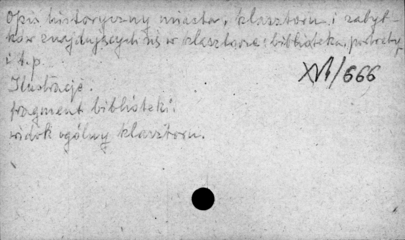 Opis historyczny miasta, klasztoru i zabyt-
ków znajdujących się w klasztorze: biblioteka, portrety,
i t.p.
XVI/666
Ilustracje:
fragment biblioteki.
widok ogólny klasztoru.